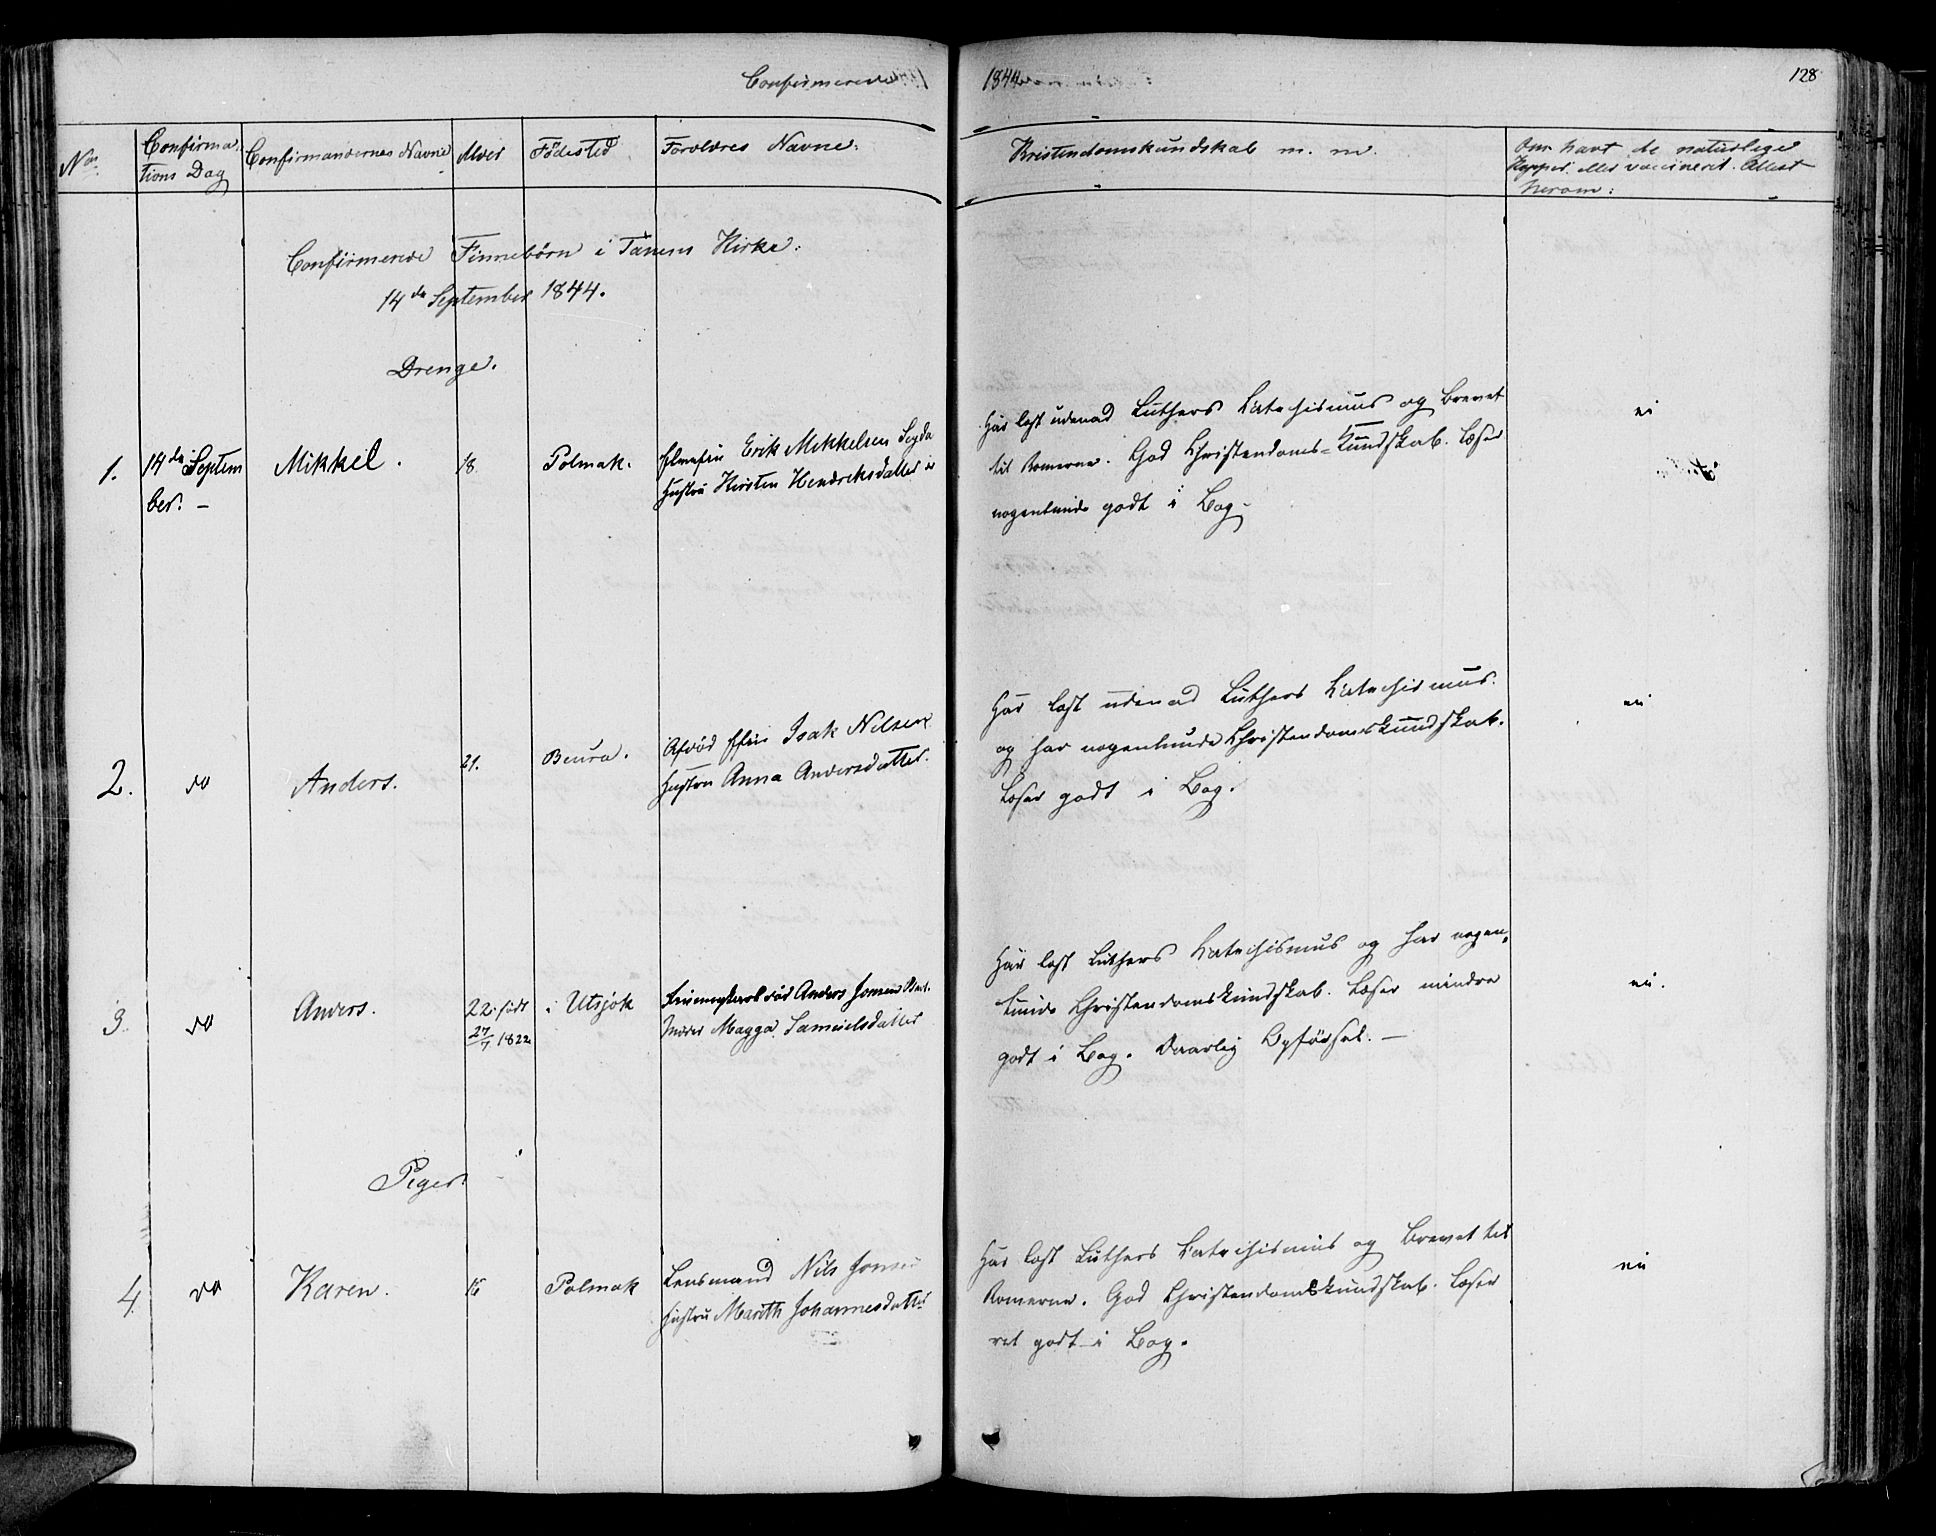 Confirmerede 1844
128
No
Confirma-
tions Dag
Confirmandernes Navne
Alder
Födested
Forældres Navne.
Kristendomskundskab m. m.
Om havt de naturlige
Kopper eller vaccineret. Attest
herom:
Confirmerede Finnebörn i Tanens Kirke.
14de September 1844.
Drenge.
1. 14de Septem
ber. –
Mikkel.
18.
Polmak.
Erik Mikkelsen
Hustru Kirsten Hendriksdatter
Har læst udenad Luthers Katechismus og Brevet
til Romerne. God Christendoms-Kundskab. Læser
nogenlunde godt i Bog.
2. do
Anders.
21.
Beura.
Afdöd Isak Nilsen
Hustru Anna Andersdatter.
Har læst udenad Luthers Katechismus.
og har nogenlunde Christendomskundskab.
Læser godt i Bog.
3. do
Anders.
22. födt
27/7 1822
i Utsjok
Anders Jonsen
Moder Magga Samuelsdatter
Har læst Luthers Katechismus og har nogen-
lunde Christendomskundskab. Læser mindre
godt i Bog. Daarlig Opförsel. –
Piger.
4. do
Karen.
16
Polmak
Lensmand Nils Jonsen
Hustru Marith Johannesdatter
Har læst Luthers Katechismus og Brevet til
Romerne. God Christendomskundskab. Læser
ret godt i Bog.